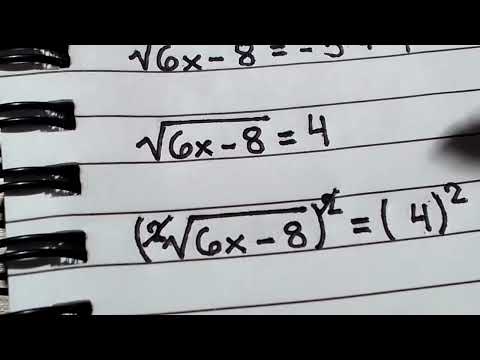 √6x-8 = -
√6x-8 = 4
(²√6x-8)² = (4)²